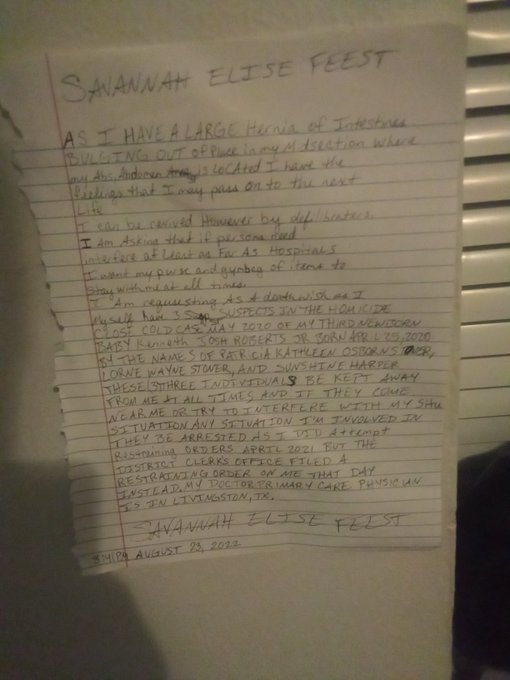 SAVANNAH ELISE FEEST
AS I HAVE A LARGE Hernia of Intestines
BULGING OUT of Place in my Midsection where
my Abs, Andomen is LOCATED I have the
feelings that I may pass on to the next
Life
I can be revived However by defibulators.
I am Asking that if persons need
interfere at Least as Far As Hospitals
I want my purse and gymbag of items to
stay with me at all times.
I Am requesting As A deathwish as I
myself have 3 SUSPECTS IN THE HOMICIDE
CLOSE COLD CASE MAY 2020 OF MY THIRD NEWBORN
BABY Kenneth JOSH ROBERTS JR BORN APRIL 25, 2020
BY THE NAMES OF PATRICIA KATHLEEN OSBORN STOVER,
LORNE WAYNE STOVER, AND SUNSHINE HARPER
THESE 3 THREE INDIVIDUALS BE KEPT AWAY
FROM ME AT ALL TIMES AND IF THEY COME
NEAR ME OR TRY TO INTERFERE WITH MY
SITUATION ANY SITUATION I'M INVOLVED IN
THEY BE ARRESTED AS I DID Attempt
Restraining ORDERS APRIL 2021 BUT THE
DISTRICT CLERKS OFFICE FILED A
RESTRAINING ORDER ON ME THAT DAY
INSTEAD. MY DOCTOR PRIMARY CARE PHYSICIAN
IS IN LIVINGSTON, TX.
SAVANNAH ELISE FEEST
AUGUST 23, 2022